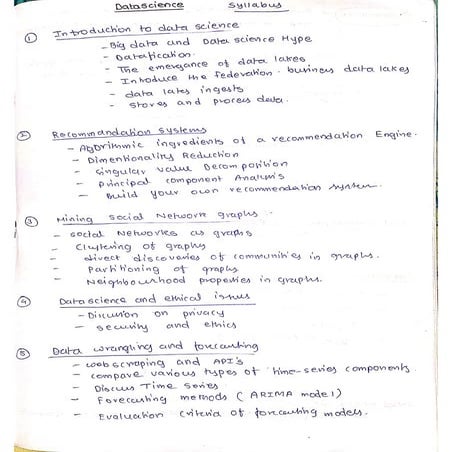 Datascience Syllabus
① Introduction to data science
- Big data and Data science Hype
- Datafication.
- The emergance of data lakes
- Introduce the federation. business data lakes
- data lakes ingests
- stores and process data.
② Recommandation systems
- Algorithmic ingredients of a recommendation Engine.
- Dimentionality Reduction
- Singular value Decomposition
- Principal component Analysis
- Build your own recommendation system.
③ Mining Social Network graphs.
- social Networks as graphs
- Clustering of graphs
- direct discoveries of communities in graphs.
- Partitioning of graphs
- Neighbourhood properties in graphs.
④ Data science and ethical issues
- Discussion on privacy
- security and ethics
⑤ Data wrangling and forecasting
- web scraping and API's
- compare various types of time-series components.
- Discuss Time series
- Forecasting methods (ARIMA model)
- Evaluation criteria of forecasting models.